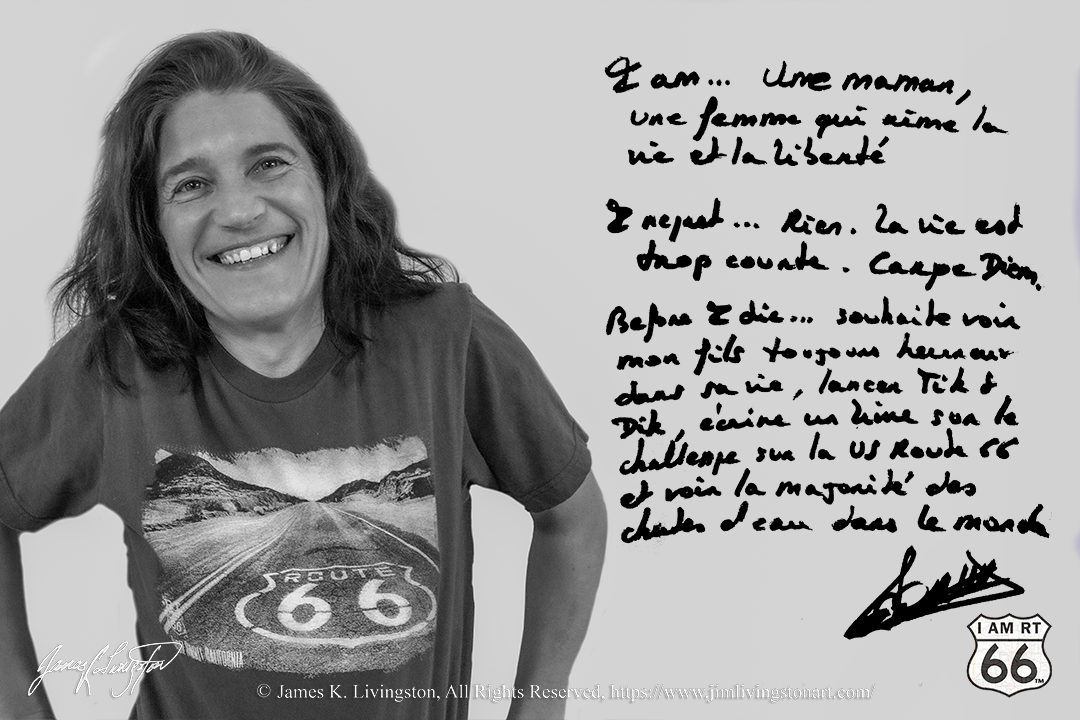 I am... Une maman,
une femme qui aime la
vie et la liberté
I regret... Rien. La vie est
trop courte. Carpe Diem.
Before I die... souhaite voir
mon fils toujours heureux
dans sa vie, lancer Tik &
Dik, écrire un livre sur le
challenge sur la US Route 66
et voir la majorité des
chutes d'eau dans le monde
I AM RT
66
TM
ROUTE
66
CALIFORNIA
James K. Livingston
© James K. Livingston, All Rights Reserved, https://www.jimlivingstonart.com/